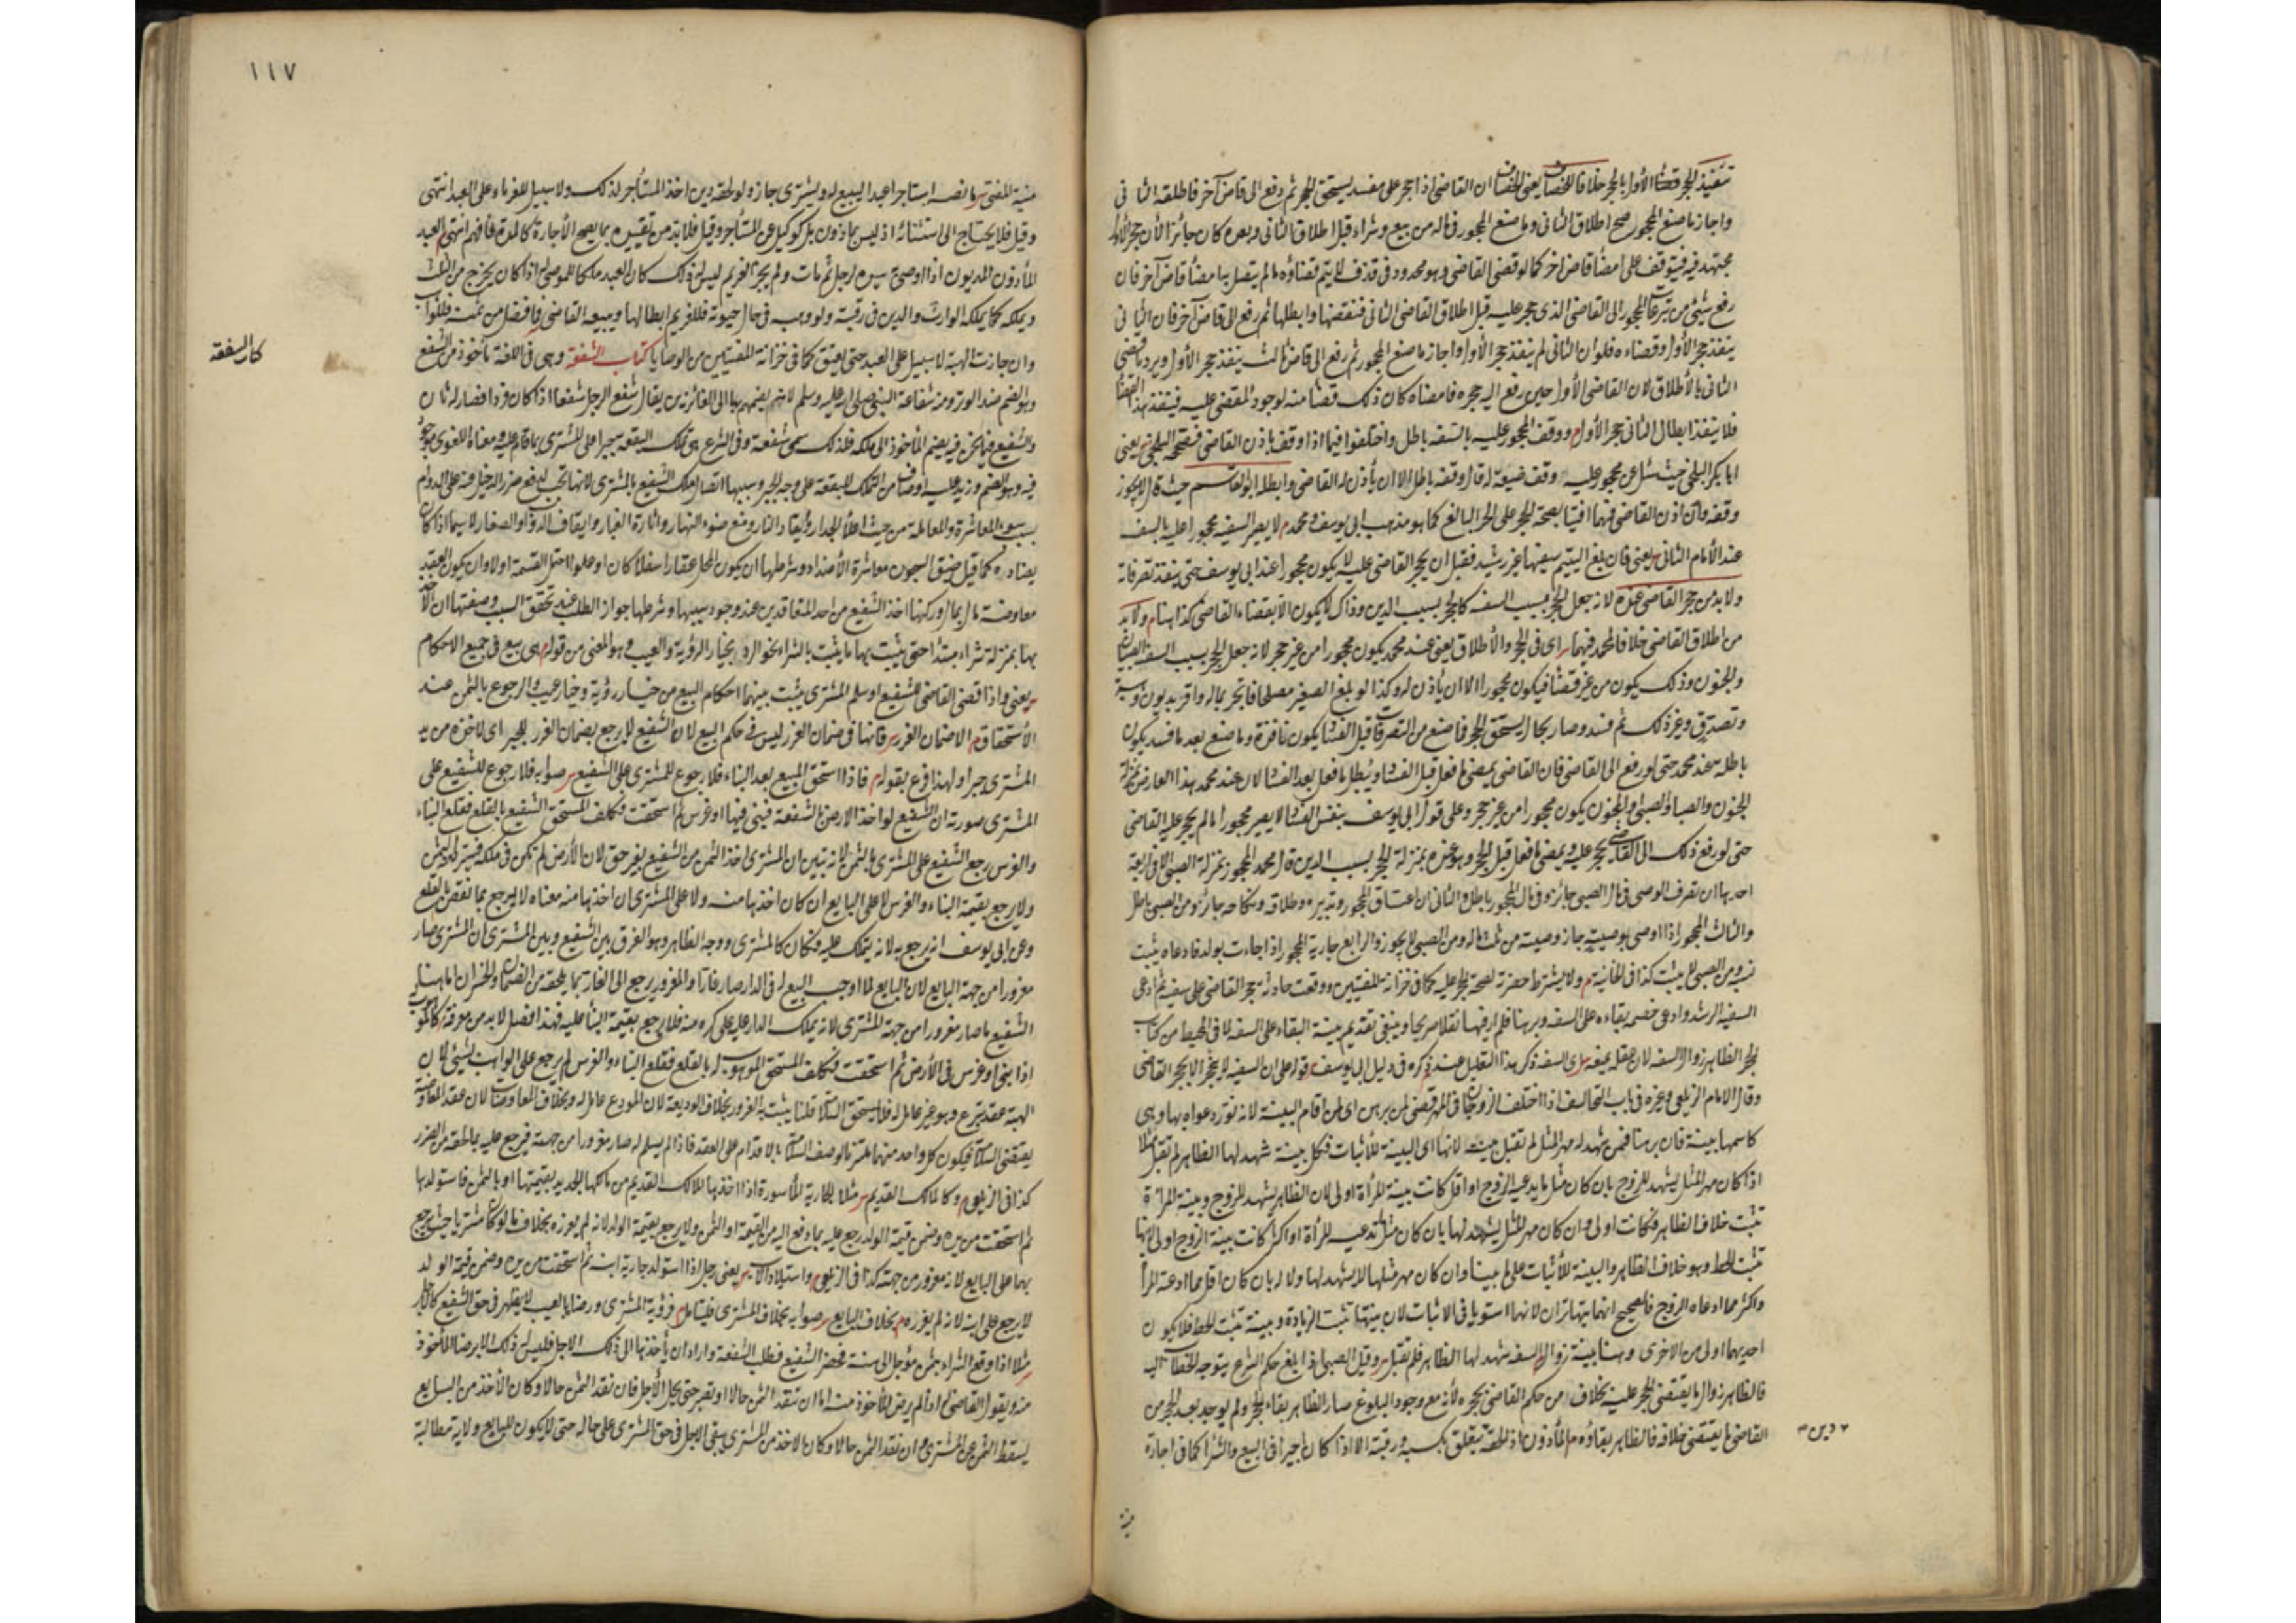 تنفيذ الحجر قضاء الأول بالحجر خلافا للخصاف يعنى للخصاف ان القاضى اذا حجر على مفسد يستحق الحجر ثم رفع الى قاض آخر فاطلقه الثانى
واجاز ما صنع المحجور صح اطلاق الثانى وما صنع المحجور فى ماله من بيع وشراء قبل اطلاق الثانى وبعده كان جائزا لأن حجر الأول
مجتهد فيه فيتوقف على امضاء قاض اخر كما لو قضى القاضى وهو محدود فى قذف لا يتم قضاؤه ما لم يتصل بها امضاء قاض آخر فان
رفع شئ من تبرعات المحجور الى القاضى الذى حجر عليه قبل اطلاق القاضى الثانى فنقضها وابطلها ثم رفع الى قاض آخر فان الثانى
ينفذ حجر الأول وقضاءه فلو ان الثانى لم ينفذ حجر الأول واجاز ما صنع المحجور ثم رفع الى قاض ثالث ينفذ حجر الأول ويرد ما قضى
الثانى بالأطلاق لان القاضى الأول حين رفع اليه حجره فامضاه كان ذلك قضاء منه لوجود المقضى عليه فينفذ هذا القضاء
فلا ينفذ ابطال الثانى حجر الأول ووقف المحجور عليه بالسفه باطل واختلفوا فيما اذا وقف باذن القاضى فصححه البلخى يعنى
ابا بكر البلخى حيث سئل عن محجور عليه وقف ضيعة له قال وقفه باطل الا ان يأذن له القاضى وابطله ابو القاسم حيث قال لا يجوز
وقفه وان اذن القاضى فهما افتيا بصحة الحجر على الحر البالغ كما هو مذهب ابى يوسف ومحمد م لا يصير السفيه محجورا عليه بالسفه
عند الأمام الثانى يعنى فان بلغ اليتيم سفيها غير رشيد فقبل ان يحجر القاضى عليه لا يكون محجورا عند ابى يوسف حتى ينفذ تصرفاته
ولابد من حجر القاضى عنده لانه جعل الحجر بسبب السفه كالحجر بسبب الدين وذاك لا يكون الا بقضاء القاضى كذا هنا م ولابد
من اطلاق القاضى خلافا لمحمد فيهما اى فى الحجر والأطلاق يعنى عند محمد يكون محجورا من غير حجر لانه جعل الحجر بسبب السفه الصبا
والجنون وذلك يكون من غير قضاء فيكون محجورا الا ان يأذن له وكذا لو بلغ الصغير مصلحا فاتجر بماله واقر بديون ووهب
وتصدق وغير ذلك ثم فسد وصار بحال يستحق الحجر فما صنع من التصرفات قبل الفساد يكون نافذة وما صنع بعد ما فسد يكون
باطلة عند محمد حتى لو رفع الى القاضى فان القاضى يمضى ما فعل قبل الفساد ويبطل ما فعل بعد الفساد لان عند محمد هذا العارض بمنزلة
الجنون والصبا والصبى والمجنون يكون محجورا من غير حجر وعلى قول ابى يوسف بنفس الفساد لا يصير محجورا ما لم يحجر عليه القاضى
حتى لو رفع ذلك الى القاضى يحجر عليه ويمضى ما فعل قبل الحجر وهو عنده بمنزلة الحجر بسبب الدين قال محمد المحجور بمنزلة الصبى الا فى اربعة
احدها ان تصرف الوصى فى مال الصبى جائز وفى مال المحجور باطل والثانى ان اعتاق المحجور وتدبيره وطلاقه ونكاحه جائز ومن الصبى باطل
والثالث المحجور اذا اوصى بوصية جاز وصيته من ثلث ماله ومن الصبى لا يجوز والرابع جارية المحجور اذا جاءت بولد فادعاه يثبت
نسبه ومن الصبى لا يثبت كذا فى الخانية م ولا يشترط حضرته لصحة الحجر عليه كما فى خزانة المفتيين ووقعت حادثة حجر القاضى على سفيه ثم ادعى
السفيه الرشد وادعى خصمه بقاءه على السفه وبرهنا فلم ار فيها نقلا صريحا وينبغى تقديم بينة البقاء على السفه لما فى المحيط من كتاب
الحجر الظاهر زوال السفه لان عقله يمنعه اى السفه ذكر هذا التعليل عند ذكره فى دليل ابى يوسف قوله على ان السفيه لا ينحجر الا بحجر القاضى
وقال الامام الزيلعى وغيره فى باب التحالف اذا اختلف الزوجان فى المهر قضى لمن برهن اى لمن اقام البينة لانه نور دعواه بها وهى
كاسمها بينة فان برهنا فمن شهد له مهر المثل لم تقبل بينته لانها اى البينة للأثبات فكل بينة شهد لها الظاهر لم تقبل مثلا
اذا كان مهر المثل يشهد للزوج بان كان مثل ما يدعيه الزوج او اقل كانت بينة المرأة اولى لان الظاهر يشهد للزوج وبينة المرأة
تثبت خلاف الظاهر فكانت اولى وان كان مهر المثل يشهد لها بان كان مثل ما تدعيه المرأة او اكثر كانت بينة الزوج اولى لانها
تثبت الحط وهو خلاف الظاهر والبينة للأثبات على ما بينا وان كان مهر مثلها لا يشهد لها ولا له بان كان اقل مما ادعته المرأة
واكثر مما ادعاه الزوج فالصحيح انهما يتهاتران لانهما استويا فى الاثبات لان بينتها تثبت الزيادة وبينته تثبت الحط فلا يكون
احديهما اولى من الاخرى وهنا بينة زوال السفه شهد لها الظاهر فلم تقبل وقيل الصبى اذا بلغ حكم الشرع بتوجه الخطاب اليه
فالظاهر زوال ما يقتضى الحجر عليه بخلاف من حكم القاضى بحجره لأنه مع وجود البلوغ صار الظاهر بقاء الحجر ولم يوجد بعد الحجر من
القاضى ما يقتضى خلافه فالظاهر بقاؤه م المأذون اذا لحقه يتعلق بكسبه ورقبته الا اذا كان اجيرا فى البيع والشراء كما فى اجارة
دين
منية
١١٧
منية المفتى ما نصه استاجر عبدا ليبيع له ويشترى جاز ولو لحقه دين اخذ المستأجر لذلك ولا سبيل للغرماء على العبد انتهى
وقيل فلا يحتاج الى استثنائه اذ ليس بماذون بل كوكيل عن المستأجر وقيل فلابد من تقييده بما يصح الأجارة كالمدة فافهم انتهى العبد
المأذون المديون اذا اوصى به سيده لرجل ثم مات ولم يجز الغريم ليس له ذلك كان العبد ملكا للموصى له اذا كان يخرج من الثلث
ويملكه كما يملكه الوارث والدين فى رقبته ولو وهبه فى حال حيوته فللغريم ابطالها ويبيعه القاضى فما فضل من ثمنه فللواهب
وان جازت الهبة لا سبيل على العبد حتى يعتق كما فى خزانة المفتيين من الوصايا كتاب الشفعة وهى فى اللغة مأخوذ من الشفع
كتاب الشفعة
وهو الضم ضد الوتر ومنه شفاعة النبى صلى الله عليه وسلم لانه يضمهم بها الى الفائزين يقال شفع الرجل شفعا اذا كان فردا فصار له ثان
والشفيع فيما نحن فيه يضم المأخوذ الى ملكه فلذلك سمى شفعة وفى الشرع هى تملك البقعة جبرا على المشترى بما قام عليه ومعناه اللغوى موجود
فيه وهو الضم وزيد عليه اوصاف من التملك للبقعة على وجه الجبر وسببها اتصال ملك الشفيع بالمشترى لانها تجب لدفع ضرر الدخيل عنه على الدوام
بسبب سوء المعاشرة والمعاملة من حيث اعلاء الجدار وايقاد النار ومنع ضوء النهار واثارة الغبار وايقاف الدواب والصغار لا سيما اذا كان
يضاده كما قيل اضيق السجون معاشرة الأضداد وشرطها ان يكون المحل عقارا سفلا كان او علوا احتمل القسمة او لا وان يكون العقد
معاوضة مال بمال وركنها اخذ الشفيع من احد المتعاقدين عند وجود سببها وشرطها جواز الطلب عند تحقق السبب وصفتها ان الأخذ
بها بمنزلة شراء مبتدأ حتى يثبت بها ما يثبت بالشراء نحو الرد بخيار الرؤية والعيب وهو المعنى من قوله هى بيع فى جميع الاحكام
يعنى واذا قضى القاضى للشفيع او سلم المشترى يثبت بينهما احكام البيع من خيار رؤية وخيار عيب والرجوع بالثمن عند
الأستحقاق م الا ضمان الغرر فانها فى ضمان الغرر ليس فى حكم البيع لان الشفيع لا يرجع بضمان الغرر للجبر اى لاخذه من يد
المشترى جبرا ولهذا فرع بقوله م فاذا استحق المبيع بعد البناء فلا رجوع للمشترى على الشفيع صوابه فلا رجوع للشفيع على
المشترى صورته ان الشفيع لو اخذ الارض بالشفعة فبنى فيها او غرس ثم استحقت فكلف المستحق الشفيع بالقلع فقلع البناء
والغرس رجع الشفيع على المشترى بالثمن لانه تبين ان المشترى اخذ الثمن من الشفيع بغير حق لان الأرض لم تكن فى ملكه فيسترد الثمن
ولا يرجع بقيمة البناء والغرس لا على البايع ان كان اخذها منه ولا على المشترى ان اخذها منه معناه لا يرجع بما نقص بالقلع
وعن ابى يوسف انه يرجع به لانه يتملك عليه فكان كالمشترى ووجه الظاهر وهو الفرق بين الشفيع وبين المشترى ان المشترى صار
مغرورا من جهة البايع لان البايع لما اوجب البيع له فى الدار صار غارا والمغرور يرجع الى الغار بما يلحقه من الضمان والخسران اما هنا
الشفيع ما صار مغرورا من جهة المشترى لانه يملك الدار عليه على كره منه فلا يرجع بقيمة البناء عليه فهذا الفصل لابد من معرفته كالموهوب
اذا بنى او غرس فى الأرض ثم استحقت فكلف المستحق الموهوب له بالقلع فقلع البناء والغرس لم يرجع على الواهب بشئ لان
الهبة عقد تبرع وهو غير عامل له فلا يستحق السلامة قلنا يثبت به الغرور بخلاف الوديعة لان المودع عامل له وبخلاف المعاوضات لان عقد المعاوضة
يقتضى السلامة فيكون كل واحد منهما ملتزما لوصف السلامة بالاقدام على العقد فاذا لم يسلم له صار مغرورا من جهته فيرجع عليه بما لحقه من الضرر
كذا فى الزيلعى م وكالمالك القديم مثلا الجارية المأسورة اذا اخذها المالك القديم من مالكها الجديد بقيمتها او بالثمن فاستولدها
ثم استحقت من يده وضمن قيمة الولد رجع عليه بما دفع اليه من القيمة او الثمن ولا يرجع بقيمة الولد لانه لم يغره بخلاف ما لو كان مشتريا حيث يرجع
بهما على البايع لانه مغرور من جهته كذا فى الزيلعى م واستيلاد الأب يعنى رجل اذا استولد جارية ابنه ثم استحقت من يده وضمن قيمة الولد
لا يرجع على ابنه لانه لم يغرره م بخلاف البايع صوابه بخلاف المشترى فليتامل م فرؤية المشترى ورضاه بالعيب لا يظهر فى حق الشفيع كالأجل
مثلا اذا وقع الشراء بثمن مؤجل الى سنة فحضر الشفيع فطلب الشفعة واراد ان يأخذها الى ذلك الاجل فليس له ذلك الا برضا المأخوذ
منه ويقول القاضى له اذا لم يرض المأخوذ منه اما ان تنقد الثمن حالا او تصبر حتى يحل الأجل فان نقد الثمن حالا وكان الأخذ من البايع
يسقط الثمن عن المشترى وان نقد الثمن حالا وكان الاخذ من المشترى يبقى الاجل فى حق المشترى على حاله حتى لا يكون للبايع ولاية مطالبة